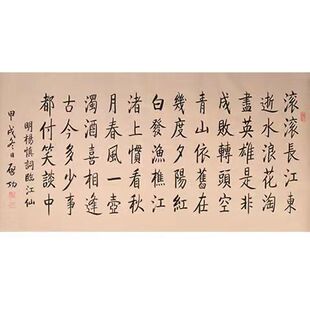 滚滚長江東
逝水浪花淘
盡英雄是非
成敗轉頭空
青山依舊在
幾度夕陽紅
白發漁樵江
渚上慣看秋
月春風一壺
濁酒喜相逢
古今多少事
都付笑談中
明楊慎詞臨江仙
甲戌冬日启功